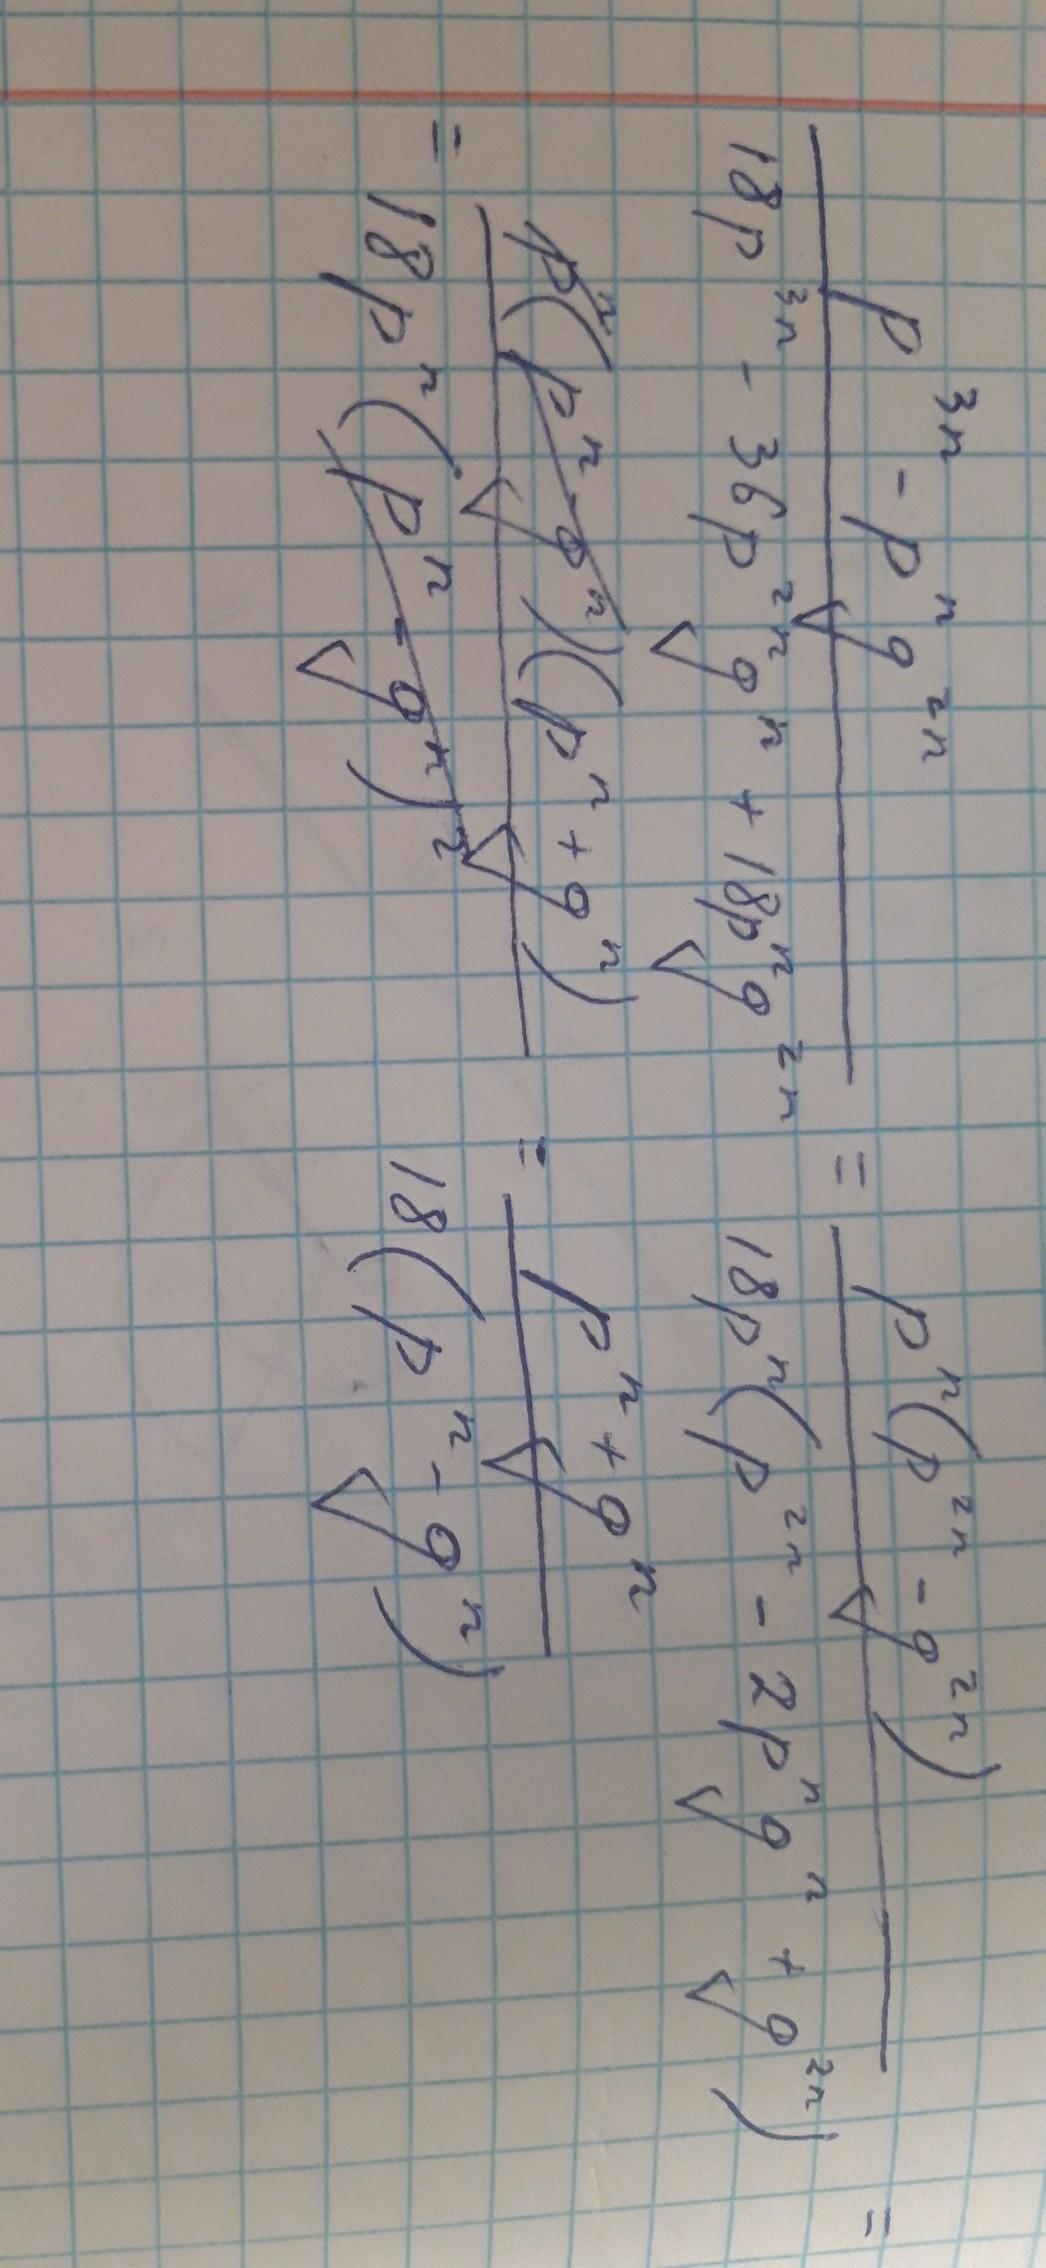 p^{3n} - p^n q^{2n} / 18p^{3n} - 36p^{2n} q^n + 18p^n q^{2n} = p^n(p^{2n} - q^{2n}) / 18p^n(p^{2n} - 2p^n q^n + q^{2n}) =
= p^n(p^n - q^n)(p^n + q^n) / 18p^n(p^n - q^n)^2 = p^n + q^n / 18(p^n - q^n)